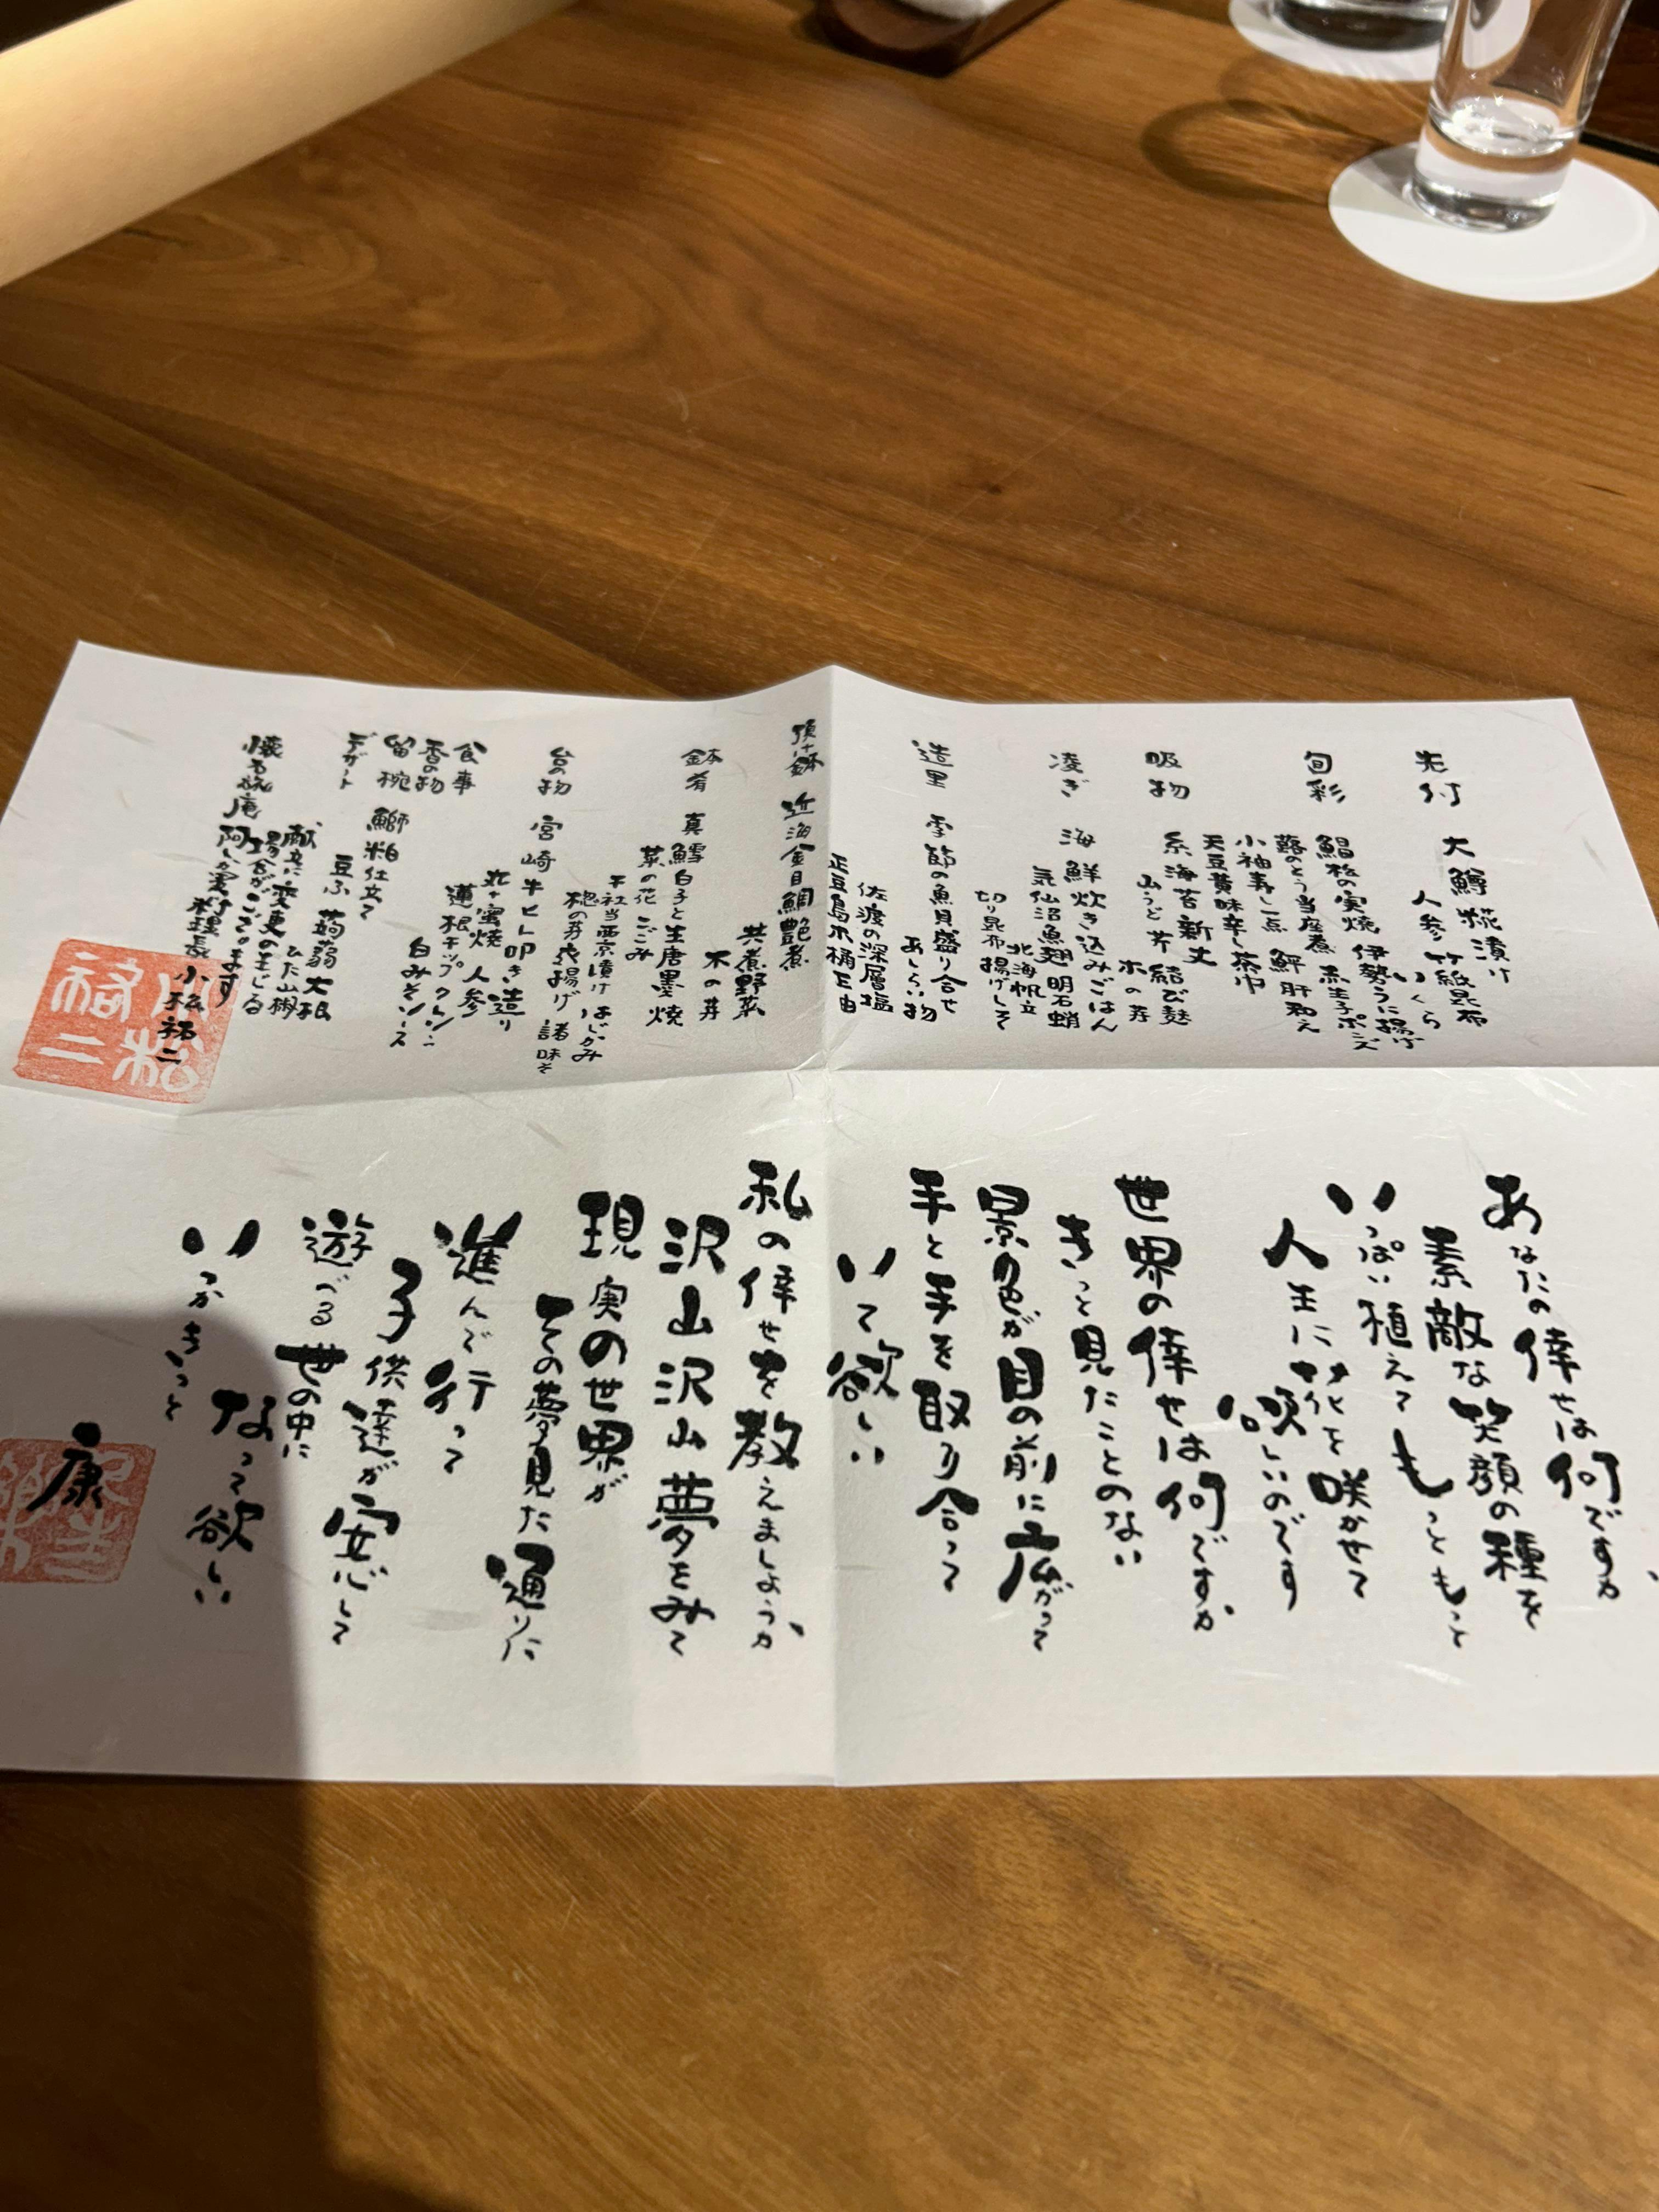 先付
大鱒糀漬け
人参 竹紙昆布
いくら
旬彩
伊勢うに揚げ
鯧松の実焼 赤生子ポンズ
蕗のとう当座煮 鮃肝和え
小袖寿し一点
天豆黄味辛し茶巾
吸物
糸海苔新丈 結び麩
山うど 芹 木の芽
凌ぎ
海鮮炊き込みごはん
気仙沼魚翅 明石蛸
北海帆立
切り昆布揚げして
造里
季節の魚貝盛り合せ
あしらい物
佐渡の深層塩
正豆島木桶正油
預け鉢
近海金目鯛艶煮
共煮野菜
木の芽
鉢肴
真鱈白子と生唐墨焼
菜の花 こごみ
干社当西京漬け はじかみ
楤の芽衣揚げ 諸味そ
台の物
宮崎牛ヒレ叩き造り
丸十蜜焼 人参
蓮根チップ クレソン
白みそソース
食事
香の物
留椀
鰤粕仕立て
豆ふ 蒟蒻 大根
デザート
献立に変更の生じる
場合がございます
懐石旅庵 阿しか里
料理長 小松祐二
小松
祐二
あなたの倖せは何ですか
素敵な笑顔の種を
いっぱい植えてもっともっと
人生に花を咲かせて
欲しいのです
世界の倖せは何ですか
きっと見たことのない
景色が目の前に広がって
手と手を取り合って
いて欲しい
私の倖せを教えましょうか
沢山沢山夢をみて
現実の世界が
その夢見た通りに
進んで行って
子供達が安心して
遊べる世の中に
なって欲しい
いつかきっと
康